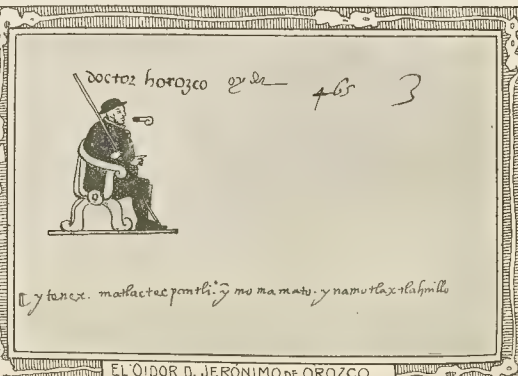 doctor horozco oydor 465 3
y tenex. matlactecpantli. y mo mamato. y namotlaxtlahuillo
EL OIDOR D. JERÓNIMO DE OROZCO